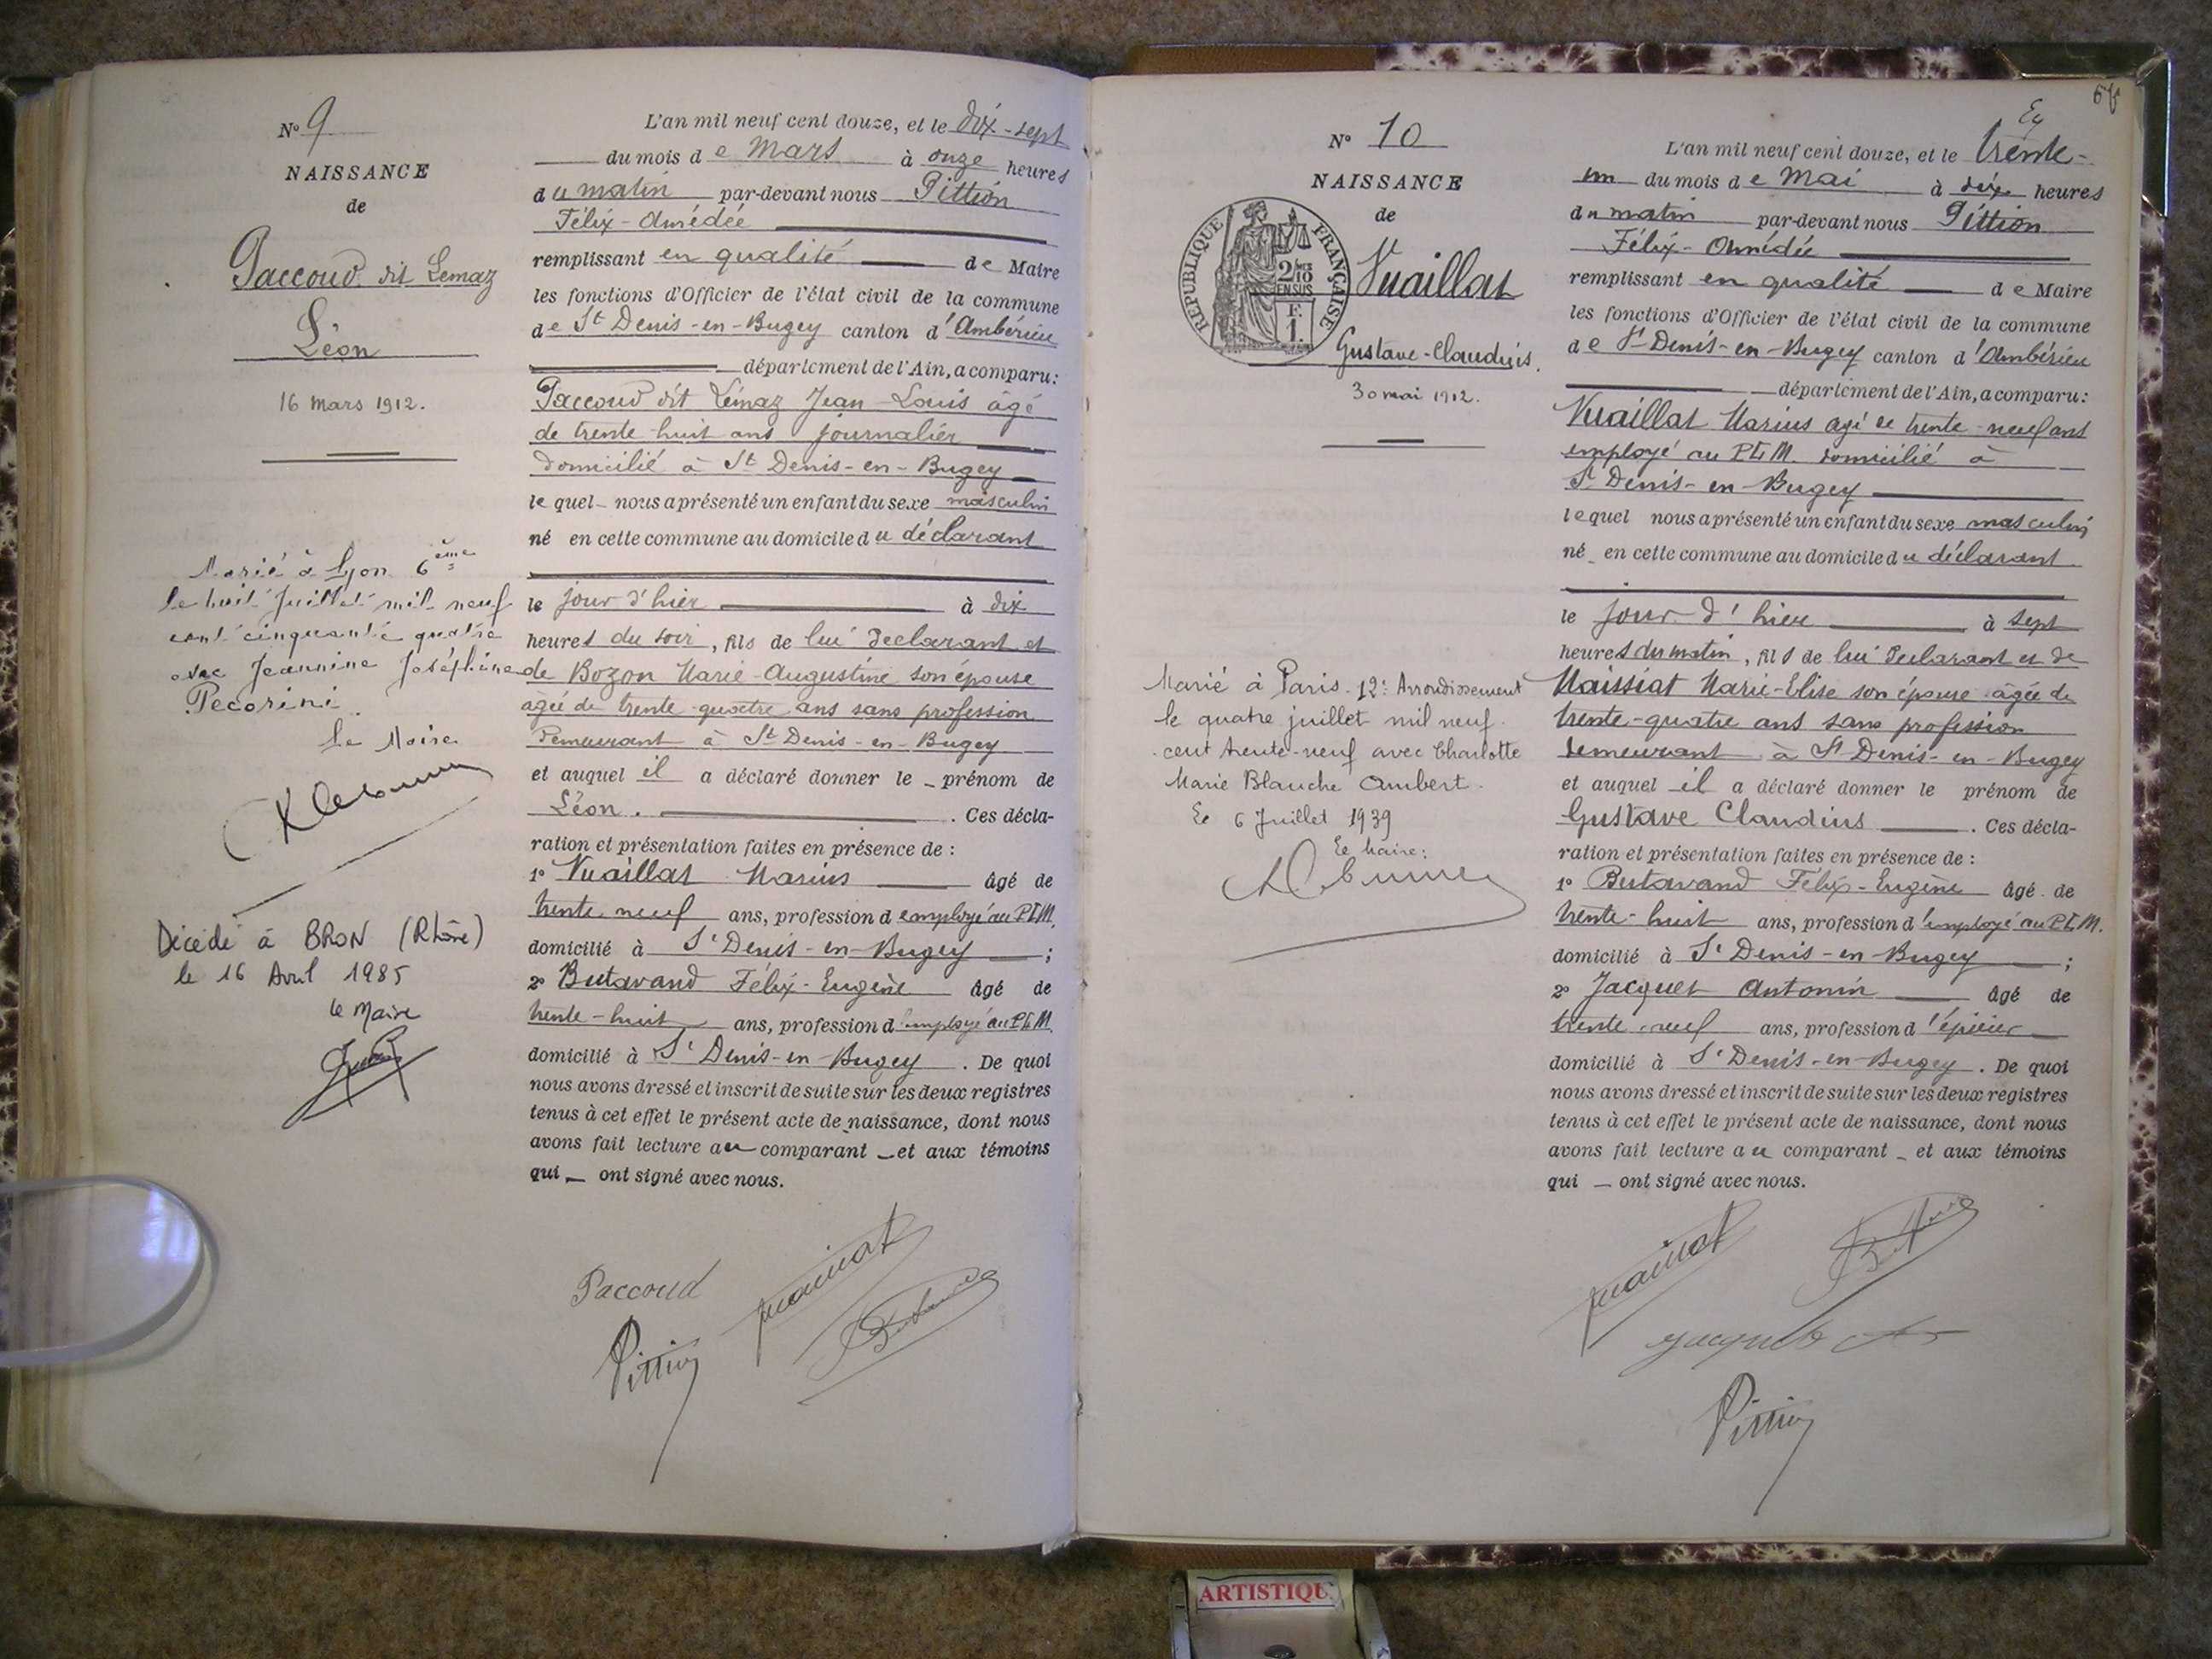 N° 9
NAISSANCE
de
Paccoud dit Lemaz
Léon
16 mars 1912.
Marié à Lyon 6ème
le huit Juillet mil neuf
cent cinquante quatre
avec Jeannine Joséphine
Pecorini
Le Maire
Décédé à BRON (Rhône)
le 16 Avril 1985
le Maire
L'an mil neuf cent douze, et le dix-sept
du mois de Mars à onze heures
du matin par-devant nous Pittion
Félix-Amédée
remplissant en qualité de Maire
les fonctions d'Officier de l'état civil de la commune
de St Denis-en-Bugey canton d'Ambérieu
département de l'Ain, a comparu:
Paccoud dit Lémaz Jean Louis âgé
de trente huit ans journalier
domicilié à St Denis-en-Bugey
lequel nous a présenté un enfant du sexe masculin
né en cette commune au domicile du déclarant
le jour d'hier à dix
heures du soir, fils de lui declarant et
de Bozon Marie-Augustine son épouse
âgée de trente-quatre ans sans profession
demeurant à St Denis-en-Bugey
et auquel il a déclaré donner le prénom de
Léon. . Ces décla-
ration et présentation faites en présence de :
1° Vuaillat Marius âgé de
trente neuf ans, profession d employé au PLM.
domicilié à St Denis-en-Bugey ;
2° Butavand Félix-Eugène âgé de
trente-huit ans, profession d'employé au PLM.
domicilié à St Denis-en-Bugey. De quoi
nous avons dressé et inscrit de suite sur les deux registres
tenus à cet effet le présent acte de naissance, dont nous
avons fait lecture au comparant et aux témoins
qui ont signé avec nous.
Paccoud
Vuaillat
Butavand
Pittion
N° 10
NAISSANCE
de
RÉPUBLIQUE FRANÇAISE
2/10
EN SUS
F.
1.
Vuaillat
Gustave-Claudius.
30 mai 1912.
Marié à Paris 12e Arrondissement
le quatre juillet mil neuf
cent trente-neuf avec Charlotte
Marie Blanche Ambert.
Le 6 Juillet 1939
Le Maire:
L'an mil neuf cent douze, et le trente-
un du mois de Mai à dix heures
du matin par-devant nous Pittion
Félix-Amédée
remplissant en qualité de Maire
les fonctions d'Officier de l'état civil de la commune
de St Denis-en-Bugey canton d'Ambérieu
département de l'Ain, a comparu:
Vuaillat Marius agé de trente-neuf ans
employé au PLM. domicilié à
St Denis-en-Bugey
lequel nous a présenté un enfant du sexe masculin
né en cette commune au domicile du déclarant
le jour d'hier à sept
heures du matin, fils de lui declarant et de
Maissiat Marie-Elise son épouse âgée de
trente-quatre ans sans profession
demeurant à St Denis-en-Bugey
et auquel il a déclaré donner le prénom de
Gustave Claudius . Ces décla-
ration et présentation faites en présence de :
1° Butavand Félix-Eugène âgé de
trente-huit ans, profession d'employé au PLM.
domicilié à St Denis-en-Bugey ;
2° Jacquet Antonin âgé de
trente-neuf ans, profession d'épicier
domicilié à St Denis-en-Bugey. De quoi
nous avons dressé et inscrit de suite sur les deux registres
tenus à cet effet le présent acte de naissance, dont nous
avons fait lecture au comparant et aux témoins
qui ont signé avec nous.
Vuaillat
Butavand
Jacquet
Pittion
ARTISTIQU